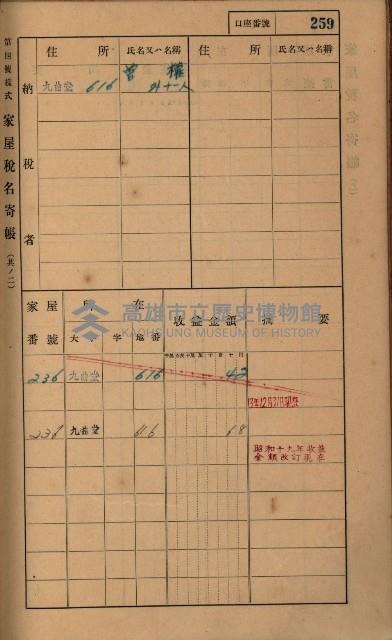 口座番號 259
第四號樣式 家屋稅名寄帳 (其ノ二)
納稅者
住所 氏名又ハ名稱 住所 氏名又ハ名稱
九曲堂 616 曾 權
外十一人
家屋番號 所在 收益金額 摘要
大字 地番
236 九曲堂 616 42
13年12月31日現在
236 九曲堂 616 68
昭和十九年收益
金額改訂現在
高雄市立歷史博物館
KAOHSIUNG MUSEUM OF HISTORY